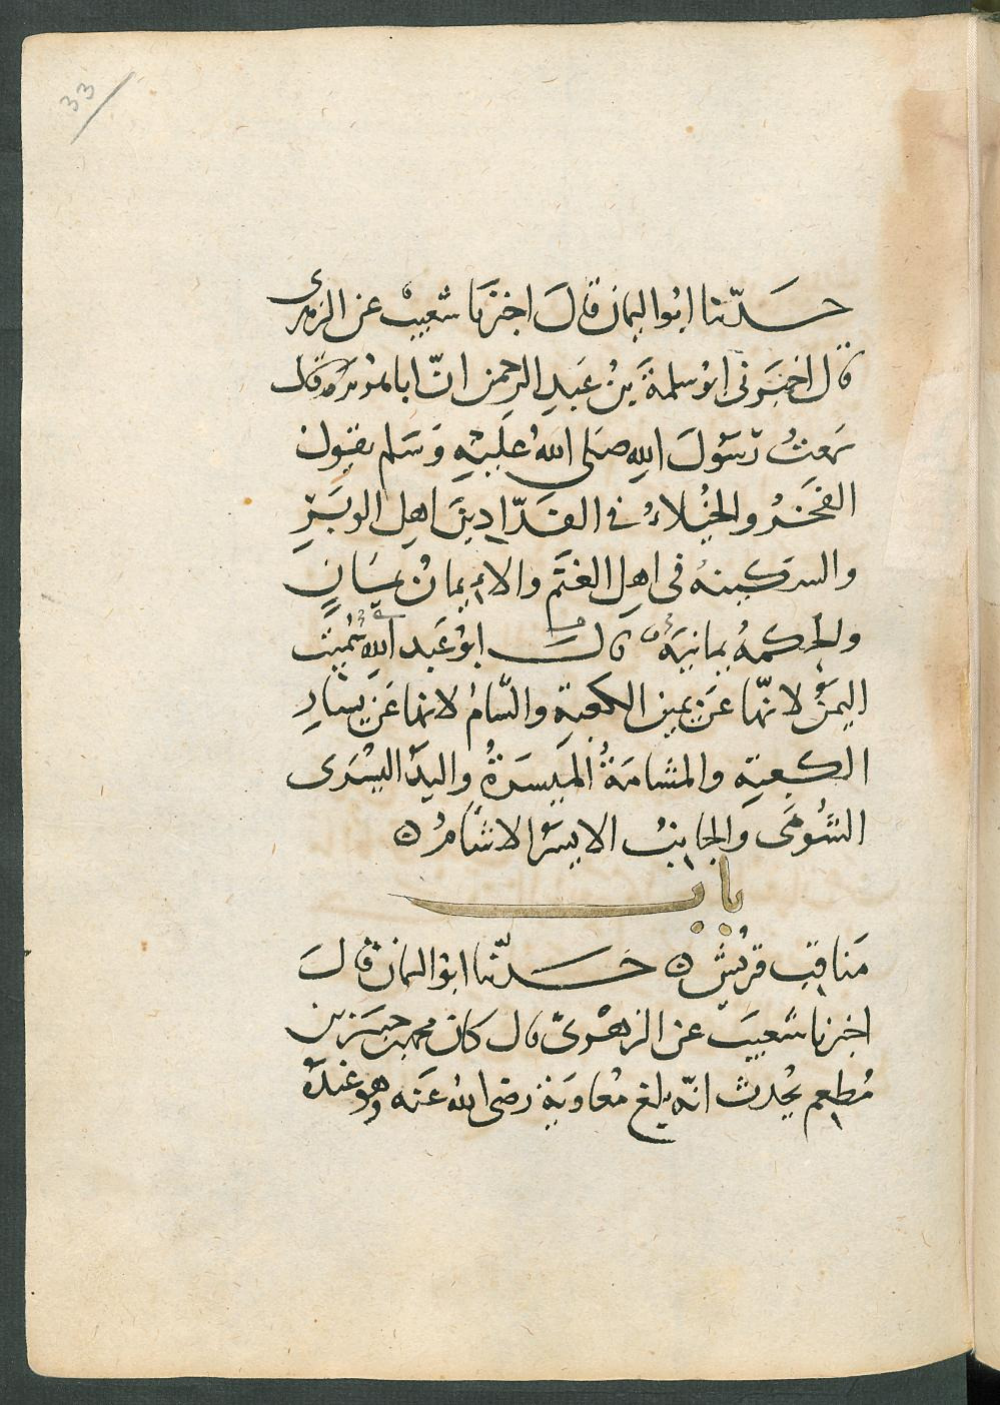 33
حَدّثنا ابُوا اليمان قالَ اخبرَنا شعيبْ عن الزهرى
قال اخبَرنى ابوُ سلمةَ بنُ عَبدِ الرحمن انّ ابا هُريرة قال
سَمعتُ رَسُولَ اللهِ صَلى اللهُ عليْهِ وَسَلم يقول
الفَخرُ والخُيلاءُ فى الفَدّادِينَ اهلِ الوَبَرِ
والسكينهُ فى اهلِ الغنَمِ والاِيمانُ يمَانٍ
والحكمةُ يمانيَةٌ قالَ ابوُ عَبد اللهِ سُمِيت
اليمنُ لانّها عَن يمين الكعبةِ والشّامُ لانها عَن يسَارِ
الكعبَةِ والمشامَةُ المَيسَرةُ واليدُ اليُسْرَى
الشُومَى والجانبُ الايسَرُ الاشَامُ ٥
باب
مَناقِب قريْش ٥ حَدّثنا ابوُ اليمان قالَ
اخبرنا شعيبَ عن الزهرىّ قال كانَ محمد بن جبَير بن
مُطعِم يُحدث انّه بلغ مُعاويَة رَضى الله عَنه وهو عندهُ